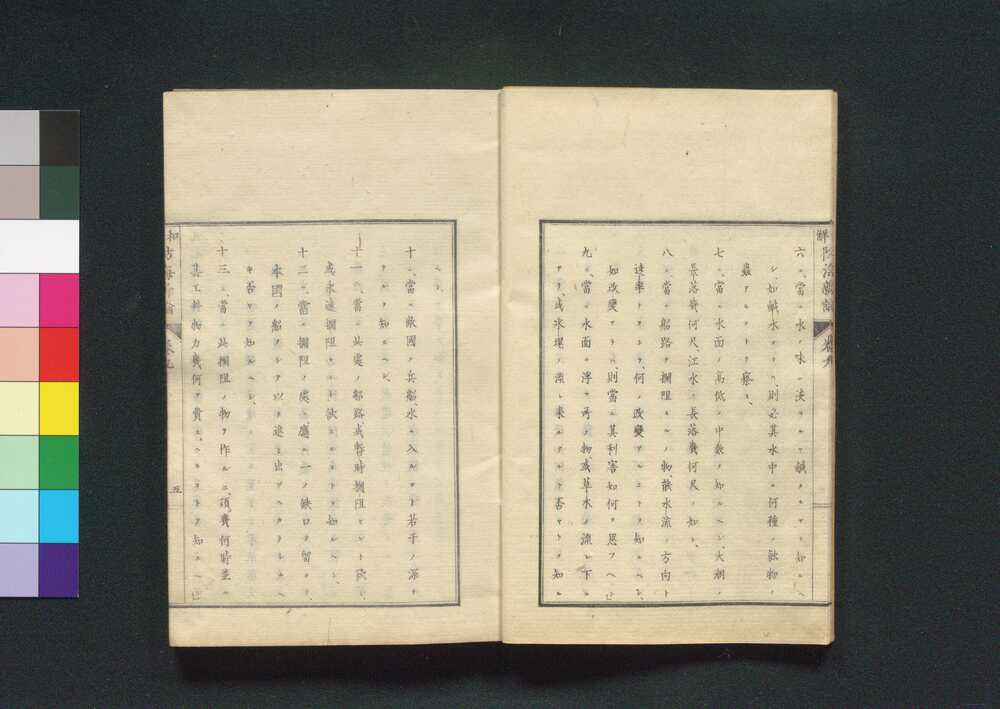 六ニ、當ニ水ノ味ノ淡ナルヤ鹹ナルヤヲ知ルヘ
シ、如鹹水ナラハ、則必其水中ニ何種ノ蝕物ノ
蟲アルヿヲ察ス、
七ニ、當ニ水面ノ高低ノ中數ヲ知ルヘシ、大潮ノ
長落幾何尺、江水ノ長落幾何尺ヲ知ル、
八ニ、當ニ船路ヲ攔阻スルノ物、能水流ノ方向ト
速率トヲシテ何ノ改變アルヿヲ知ルヘシ、
如改變アラハ、則當ニ其利害如何ヲ思フヘシ
九ニ、當ニ水面ニ浮フ所ノ物、或草木ノ流レ下ル
ヤヲ、或氷塊ノ流レ來ルアルヤ否ヤヲ知ル
ヘシ、
十ニ、當ニ敵國ノ兵船、水ニ入ルヿ若干ノ深サ
ナルヲ知ルヘシ、
十一ニ、當ニ此處ノ船路或暫時攔阻セント欲シ、
或永遠攔阻セント欲スルヿヲ知ルヘシ、
十二ニ、當ニ攔阻ノ處ニ應ニ一ノ缺口ヲ留メ、
本國ノ船ヲシテ以テ進ミ出ツヘカラシムヘ
キ否ヤヲ知ルヘシ、
十三ニ、當ニ此攔阻ノ物ヲ作ルニ、須費何時並ニ
其工料物力幾何ヲ費エヘキヿヲ知ルヘシ
卷九
五